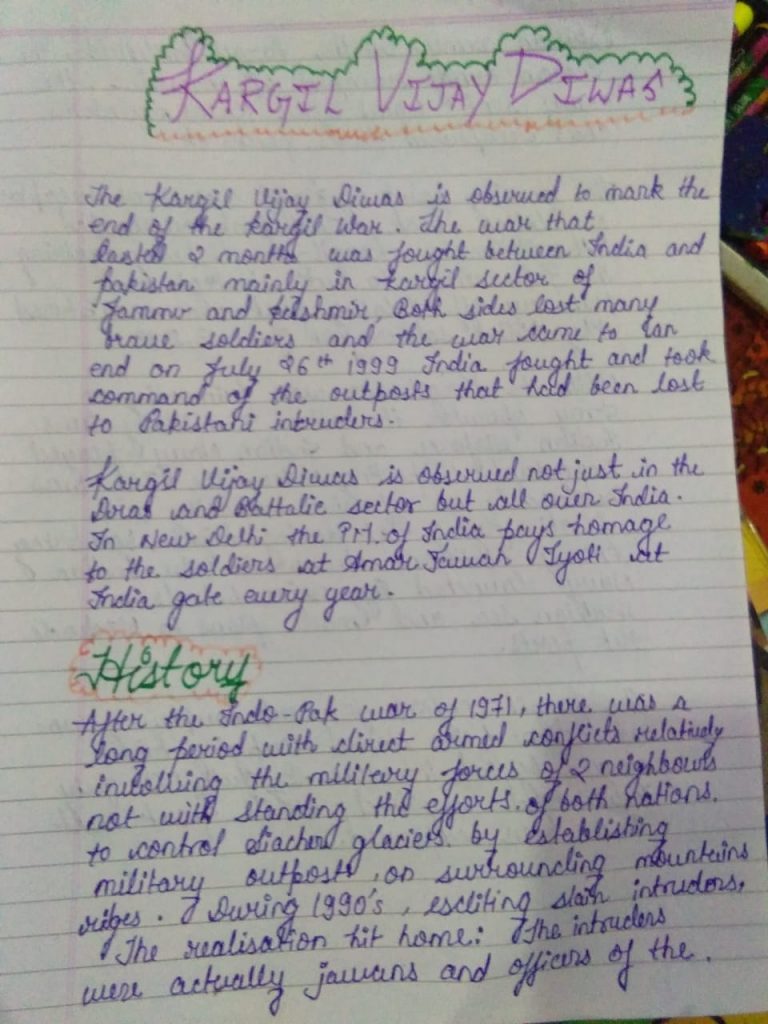 KARGIL VIJAY DIWAS
The Kargil Vijay Diwas is observed to mark the
end of the kargil war. The war that
lasted 2 months was fought between India and
pakistan mainly in kargil sector of
Jammu and Kashmir, Both sides lost many
brave soldiers and the war came to an
end on July 26th 1999 India fought and took
command of the outposts that had been lost
to Pakistani intruders.
Kargil Vijay Diwas is observed not just in the
Dras and Battalic sector but all over India.
In New Delhi the PM. of India pays homage
to the soldiers at Amar Jawan Jyoti at
India gate every year.
History
After the Indo-Pak war of 1971, there was a
long period with direct armed conflicts relatively
involving the military forces of 2 neighbours
not with standing the efforts of both nations.
to control Siachen glaciers by establishing
military outposts on surrounding mountains
riges. During 1990's, escliting slain intruders,
The realisation hit home: The intruders
were actually jawans and officers of the.